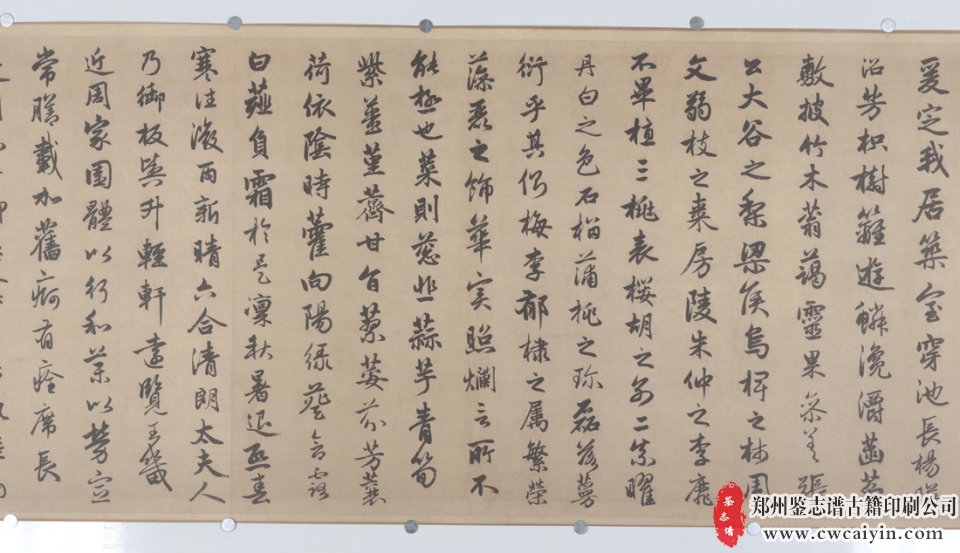 爰定我居築室穿池長楊暎
沼芳枳樹籬遊鱗瀺灂菡萏
敷披竹木蓊藹靈果參差張
公大谷之梨梁侯烏椑之柿周
文弱枝之棗房陵朱仲之李靡
不畢植三桃表櫻胡之別二柰曜
丹白之色石榴蒲桃之珍磊落蔓
衍乎其側梅李郁棣之屬繁榮
藻麗之飾華實照爛言所不
能極也菜則葱韭蒜芋青筍
紫薑堇薺甘旨蓼荽芬芳蘘
荷依陰時藿向陽綠葵含露
白薤負霜於是凜秋暑退熙春
寒往澂雨新晴六合清朗太夫人
乃御板輿升輕軒遠覽王畿
近周家園體以行和藥以勞宣
常膳載加舊痾有痊席長
鉴志谱
郑州鉴志谱古籍印刷公司
www.cwcaiyin.com